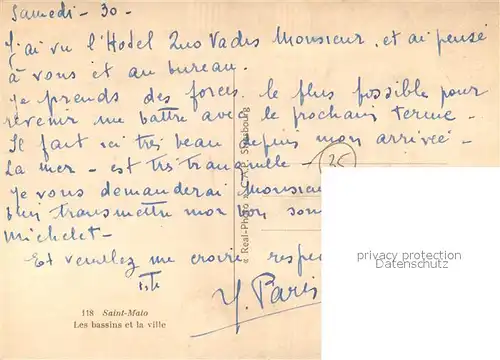 Samedi - 30 -
J'ai vu l'Hotel Quo Vadis Monsieur. et ai pensé
à vous et au bureau.
Je prends des forces le plus possible pour
revenir me battre avec le prochain terme -
Il fait ici très beau depuis mon arrivée -
La mer - est très tranquille -
Je vous demanderai Monsieur
bien transmettre mon bon sou
Michelet -
Et veuillez me croire respec
Y. Paris
25
« Real-Photo » C.A.P. Strasbourg
118 Saint-Malo
Les bassins et la ville
privacy protection
Datenschutz